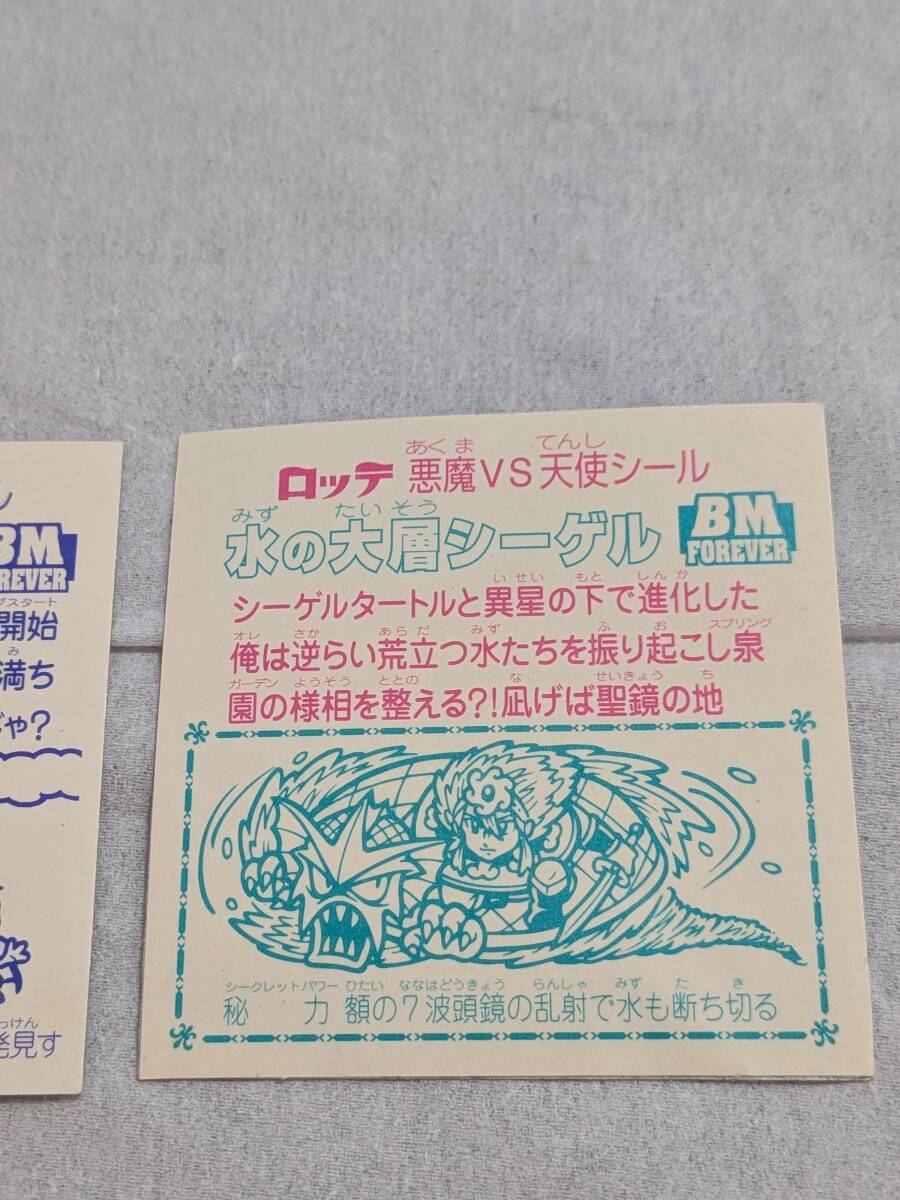 BM
REVER
グスタート
開始
み
満ち
じゃ?
っけん
発見す
あくま てんし
ロッテ 悪魔VS天使シール
みず たいそう
水の大層シーゲル
BM
FOREVER
いせい もと しんか
シーゲルタートルと異星の下で進化した
オレ さか あらだ みず ふ お スプリング
俺は逆らい荒立つ水たちを振り起こし泉
ガーデン ようそう ととの な せいきょう ち
園の様相を整える?!凪げば聖鏡の地
シークレットパワー ひたい ななはどうきょう らんしゃ みず た き
秘 力 額の7波頭鏡の乱射で水も断ち切る